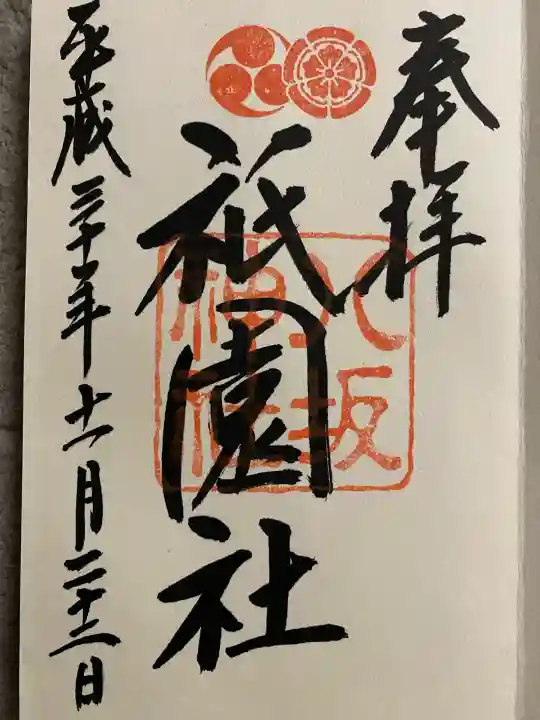 奉拝
八坂
神社
祇園社
平成三十年十一月二十三日